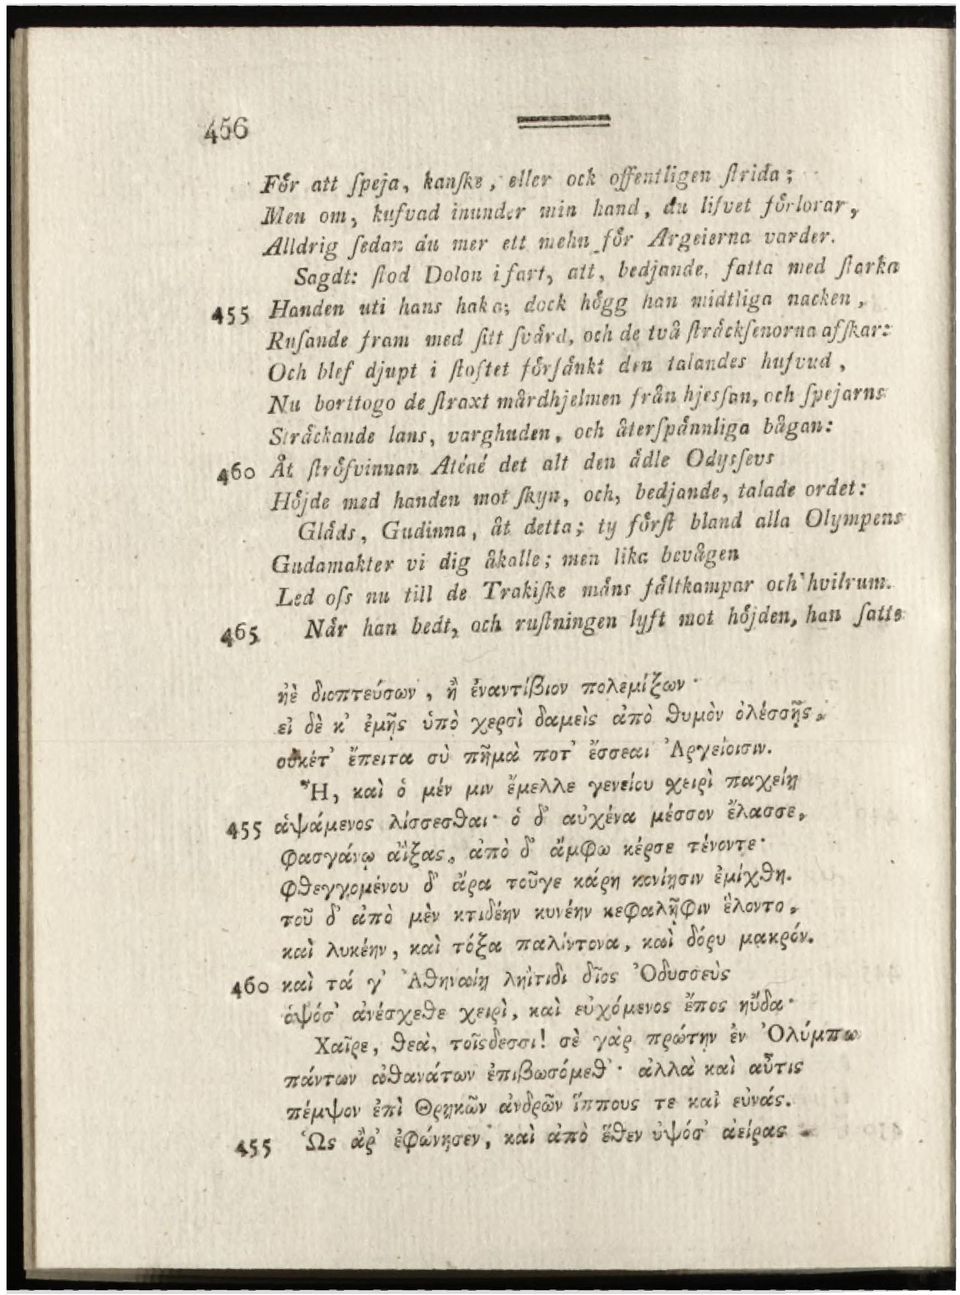 456
Får att ſpeja, kanſke, eller ock offentligen ſtrida;
Men om, kufvad inunder min hand, du lifvet fórlorar,
Alldrig ſedan du mer ett mehn fór Argeierna varder.
Sagdt: ſtod Dolon i fart, att, bedjande, fatta med ſtarka
455 Handen uti hans haka; dock hógg han midtliga nacken,
Ruſande fram med ſitt ſvård, och de två ſtråckſenorna afſkar:
Och blef djupt i ſtoftet fórſånkt den talandes hufvud,
Nu borttogo de ſtraxt mårdhjelmen från hjesſan, och ſpejarns
Stråckande lans, varghuden, och återſpånnliga bågan:
460 Åt ſtrófvinnan Aténé det alt den ådle Odysſevs
Hójde med handen mot ſkyn, och, bedjande, talade ordet:
Glåds, Gudinna, åt detta; ty fórſt bland alla Olympens
Gudamakter vi dig åkalle; men lika bevågen
Led oſs nu till de Trakiſke måns fåltkampar och hvilrum.
465 Når han bedt, och ruſtningen lyft mot hójden, han ſatte
ἠὲ διοπτεύσων, ἢ ἐναντίβιον πολεμίξων·
εἰ δὲ κ' ἐμῆς ὑπὸ χερσὶ δαμεὶς ἀπὸ θυμὸν ὀλέσσῃς,
οὐκέτ' ἔπειτα σὺ πῆμά ποτ' ἔσσεαι Ἀργείοισιν.
Ἦ, καὶ ὁ μέν μιν ἔμελλε γενείου χειρὶ παχείῃ
455 ἁψάμενος λίσσεσθαι· ὁ δ' αὐχένα μέσσον ἔλασσε,
φασγάνῳ ἀΐξας, ἀπὸ δ' ἄμφω κέρσε τένοντε·
φθεγγομένου δ' ἄρα τοῦγε κάρη κονίῃσιν ἐμίχθη.
τοῦ δ' ἀπὸ μὲν κτιδέην κυνέην κεφαλῆφιν ἕλοντο,
καὶ λυκέην, καὶ τόξα παλίντονα, καὶ δόρυ μακρόν.
460 καὶ τά γ' Ἀθηναίῃ ληΐτιδι δῖος Ὀδυσσεὺς
ὑψόσ' ἀνέσχεθε χειρὶ, καὶ εὐχόμενος ἔπος ηὔδα·
Χαῖρε, θεὰ, τοῖςδεσσι! σὲ γὰρ πρώτην ἐν Ὀλύμπῳ
πάντων ἀθανάτων ἐπιβωσόμεθ'· ἀλλὰ καὶ αὖτις
πέμψον ἐπὶ Θρῃκῶν ἀνδρῶν ἵππους τε καὶ εὐνάς.
455 Ὣς ἄρ' ἐφώνησεν, καὶ ἀπὸ ἕθεν ὑψόσ' ἀείρας